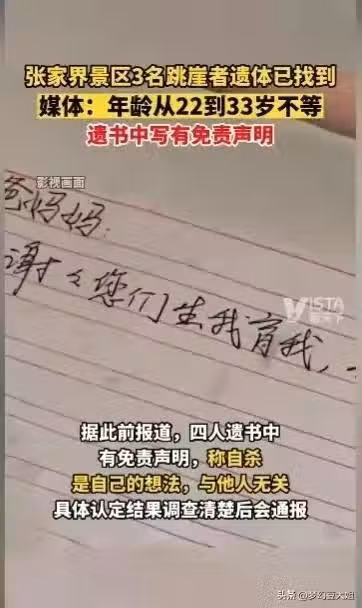 张家界景区3名跳崖者遗体已找到
媒体：年龄从22到33岁不等
遗书中写有免责声明
影视画面
爸妈妈：
谢々您们生我育我，
VISTA
看天下
据此前报道，四人遗书中
有免责声明，称自杀
是自己的想法，与他人无关
具体认定结果调查清楚后会通报
头条 @梦幻豆大姐